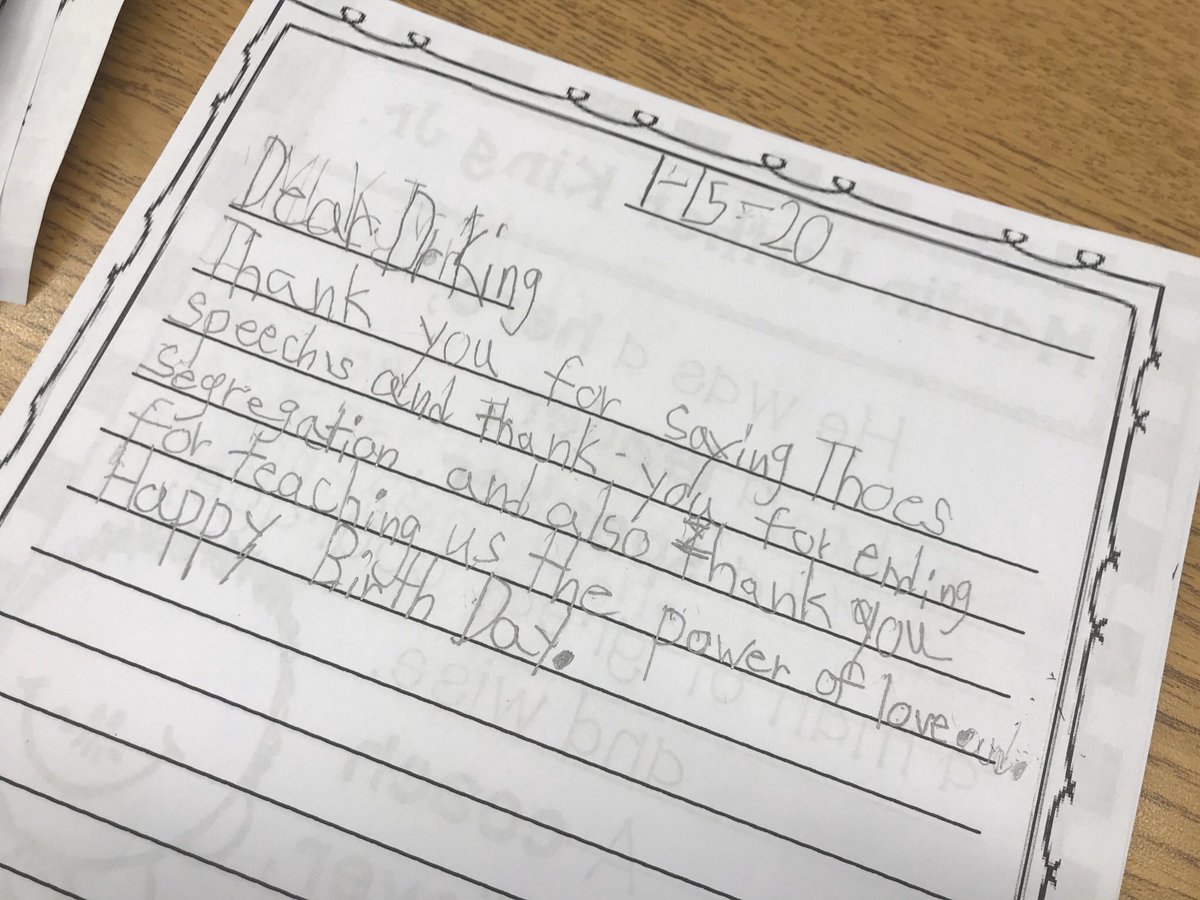 1-15-20
Dear Dr. King
Thank you for saying Thoes
speechs and thank-you for ending
segregation and also thank you
for teaching us the power of love
Happy Birth Day.